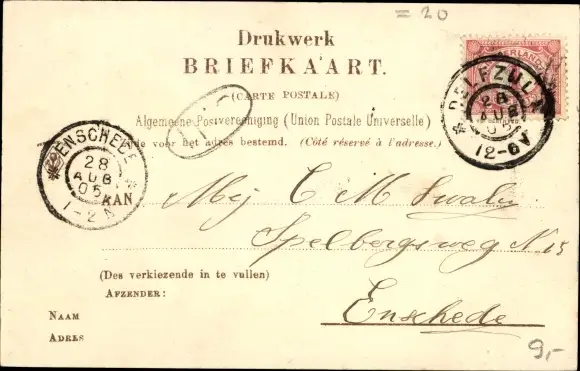 = 20
Drukwerk
BRIEFKAART.
(CARTE POSTALE)
Algemeene Postvereeniging (Union Postale Universelle)
Zijde voor het adres bestemd. (Côté réservé à l'adresse.)
DELFZIJL
28
AUG
05
12-6V
ENSCHEDE
28
AUG
05
1-2N
KAN
Mej C M Swaley
Spelbergsweg N 15
Enschede
(Des verkiezende in te vullen)
AFZENDER:
NAAM
ADRES
9,-